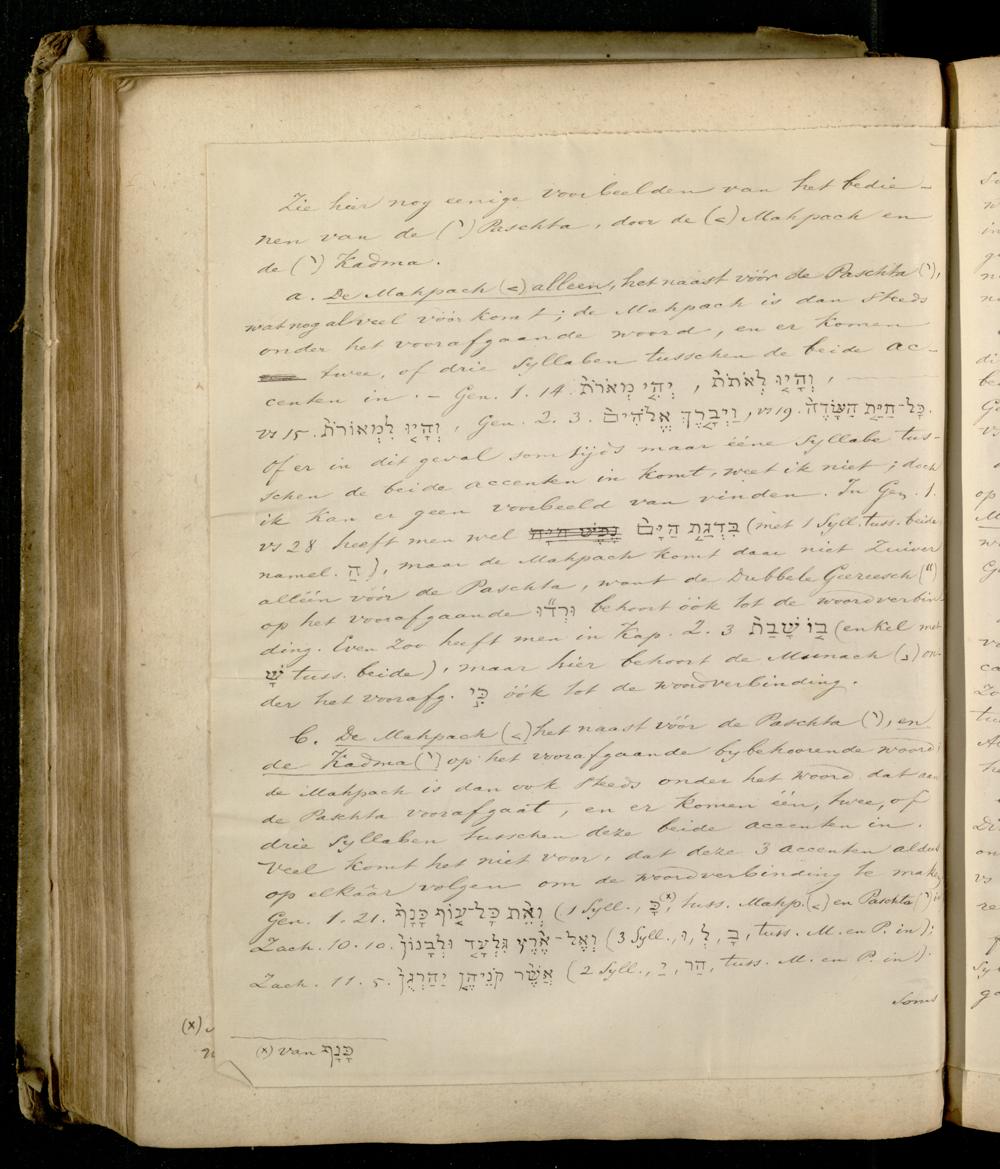 Zie hier nog eenige voorbeelden van het bedie-
nen van de (֙) Paschta, door de (֤) Mahpach en
de (֨) Kadma.
a. De Mahpach (֤) alleen, het naast vóór de Paschta (֙),
wat nog al veel vóór komt; de Mahpach is dan steeds
onder het voorafgaande woord, en er komen
twee, of drie syllaben tusschen de beide ac-
centen in. – Gen. 1. 14. יְהִ֤י מְאֹרֹת֙ , וְהָי֤וּ לְאֹתֹת֙ ,
vs 15. וְהָי֤וּ לִמְאוֹרֹת֙ , Gen. 2. 3. וַיְבָ֤רֶךְ אֱלֹהִים֙ , vs 19. כׇּל־חַיַּ֤ת הַשָּׂדֶה֙.
Of er in dit geval somtijds maar ééne syllabe tus-
schen de beide accenten in komt, weet ik niet; doch
ik kan er geen voorbeeld van vinden. In Gen. 1.
vs 28 heeft men wel נֶ֤פֶשׁ חַיָּה֙ בִּדְגַ֤ת הַיָּם֙ (met 1 Syll. tuss. beide,
namel. הַ), maar de Mahpach komt daar niet zuiver
alléén vóór de Paschta, want de Dubbele Geereesch (֞)
op het voorafgaande וּרְד֞וּ behoort óók tot de woordverbin-
ding. Even zoo heeft men in Kap. 2. 3 ב֤וֹ שָׁבַת֙ (enkel met
שָׁ tuss. beide), maar hier behoort de Munach (֣) on-
der het voorafg. כִּ֣י óók tot de woordverbinding.
b. De Mahpach (֤) het naast vóór de Paschta (֙), en
de Kadma (֨) op het voorafgaande bybehoorende woord;
de Mahpach is dan ook steeds onder het woord dat aan
de Paschta voorafgaat, en er komen één, twee, of
drie syllaben tusschen deze beide accenten in.
Veel komt het niet voor, dat deze 3 accenten aldus
op elkâar volgen om de woordverbinding te maken
Gen. 1. 21. וְאֵ֨ת כׇּל־ע֤וֹף כָּנָף֙ (1 Syll., כָּ (x), tuss. Mahp. (֤) en Paschta (֙) in
Zach. 10. 10. וְאֶל־אֶ֨רֶץ גִּלְעָ֤ד וּלְבָנוֹן֙ (3 Syll., בָ, לְ, וּ, tuss. M. en P. in);
Zach. 11. 5. אֲשֶׁ֨ר קֹנֵיהֶ֤ן יַהַרְגֻן֙ (2 Syll., הַר, יַ, tuss. M. en P. in).
Soms
(x) van כָּנָף֙
(x)